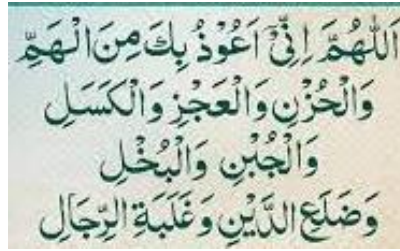 اَللّٰهُمَّ اِنِّيْ اَعُوْذُ بِكَ مِنَ الْهَمِّ
وَالْحُزْنِ وَالْعَجْزِ وَالْكَسَلِ
وَالْجُبْنِ وَالْبُخْلِ
وَضَلَعِ الدَّيْنِ وَغَلَبَةِ الرِّجَالِ